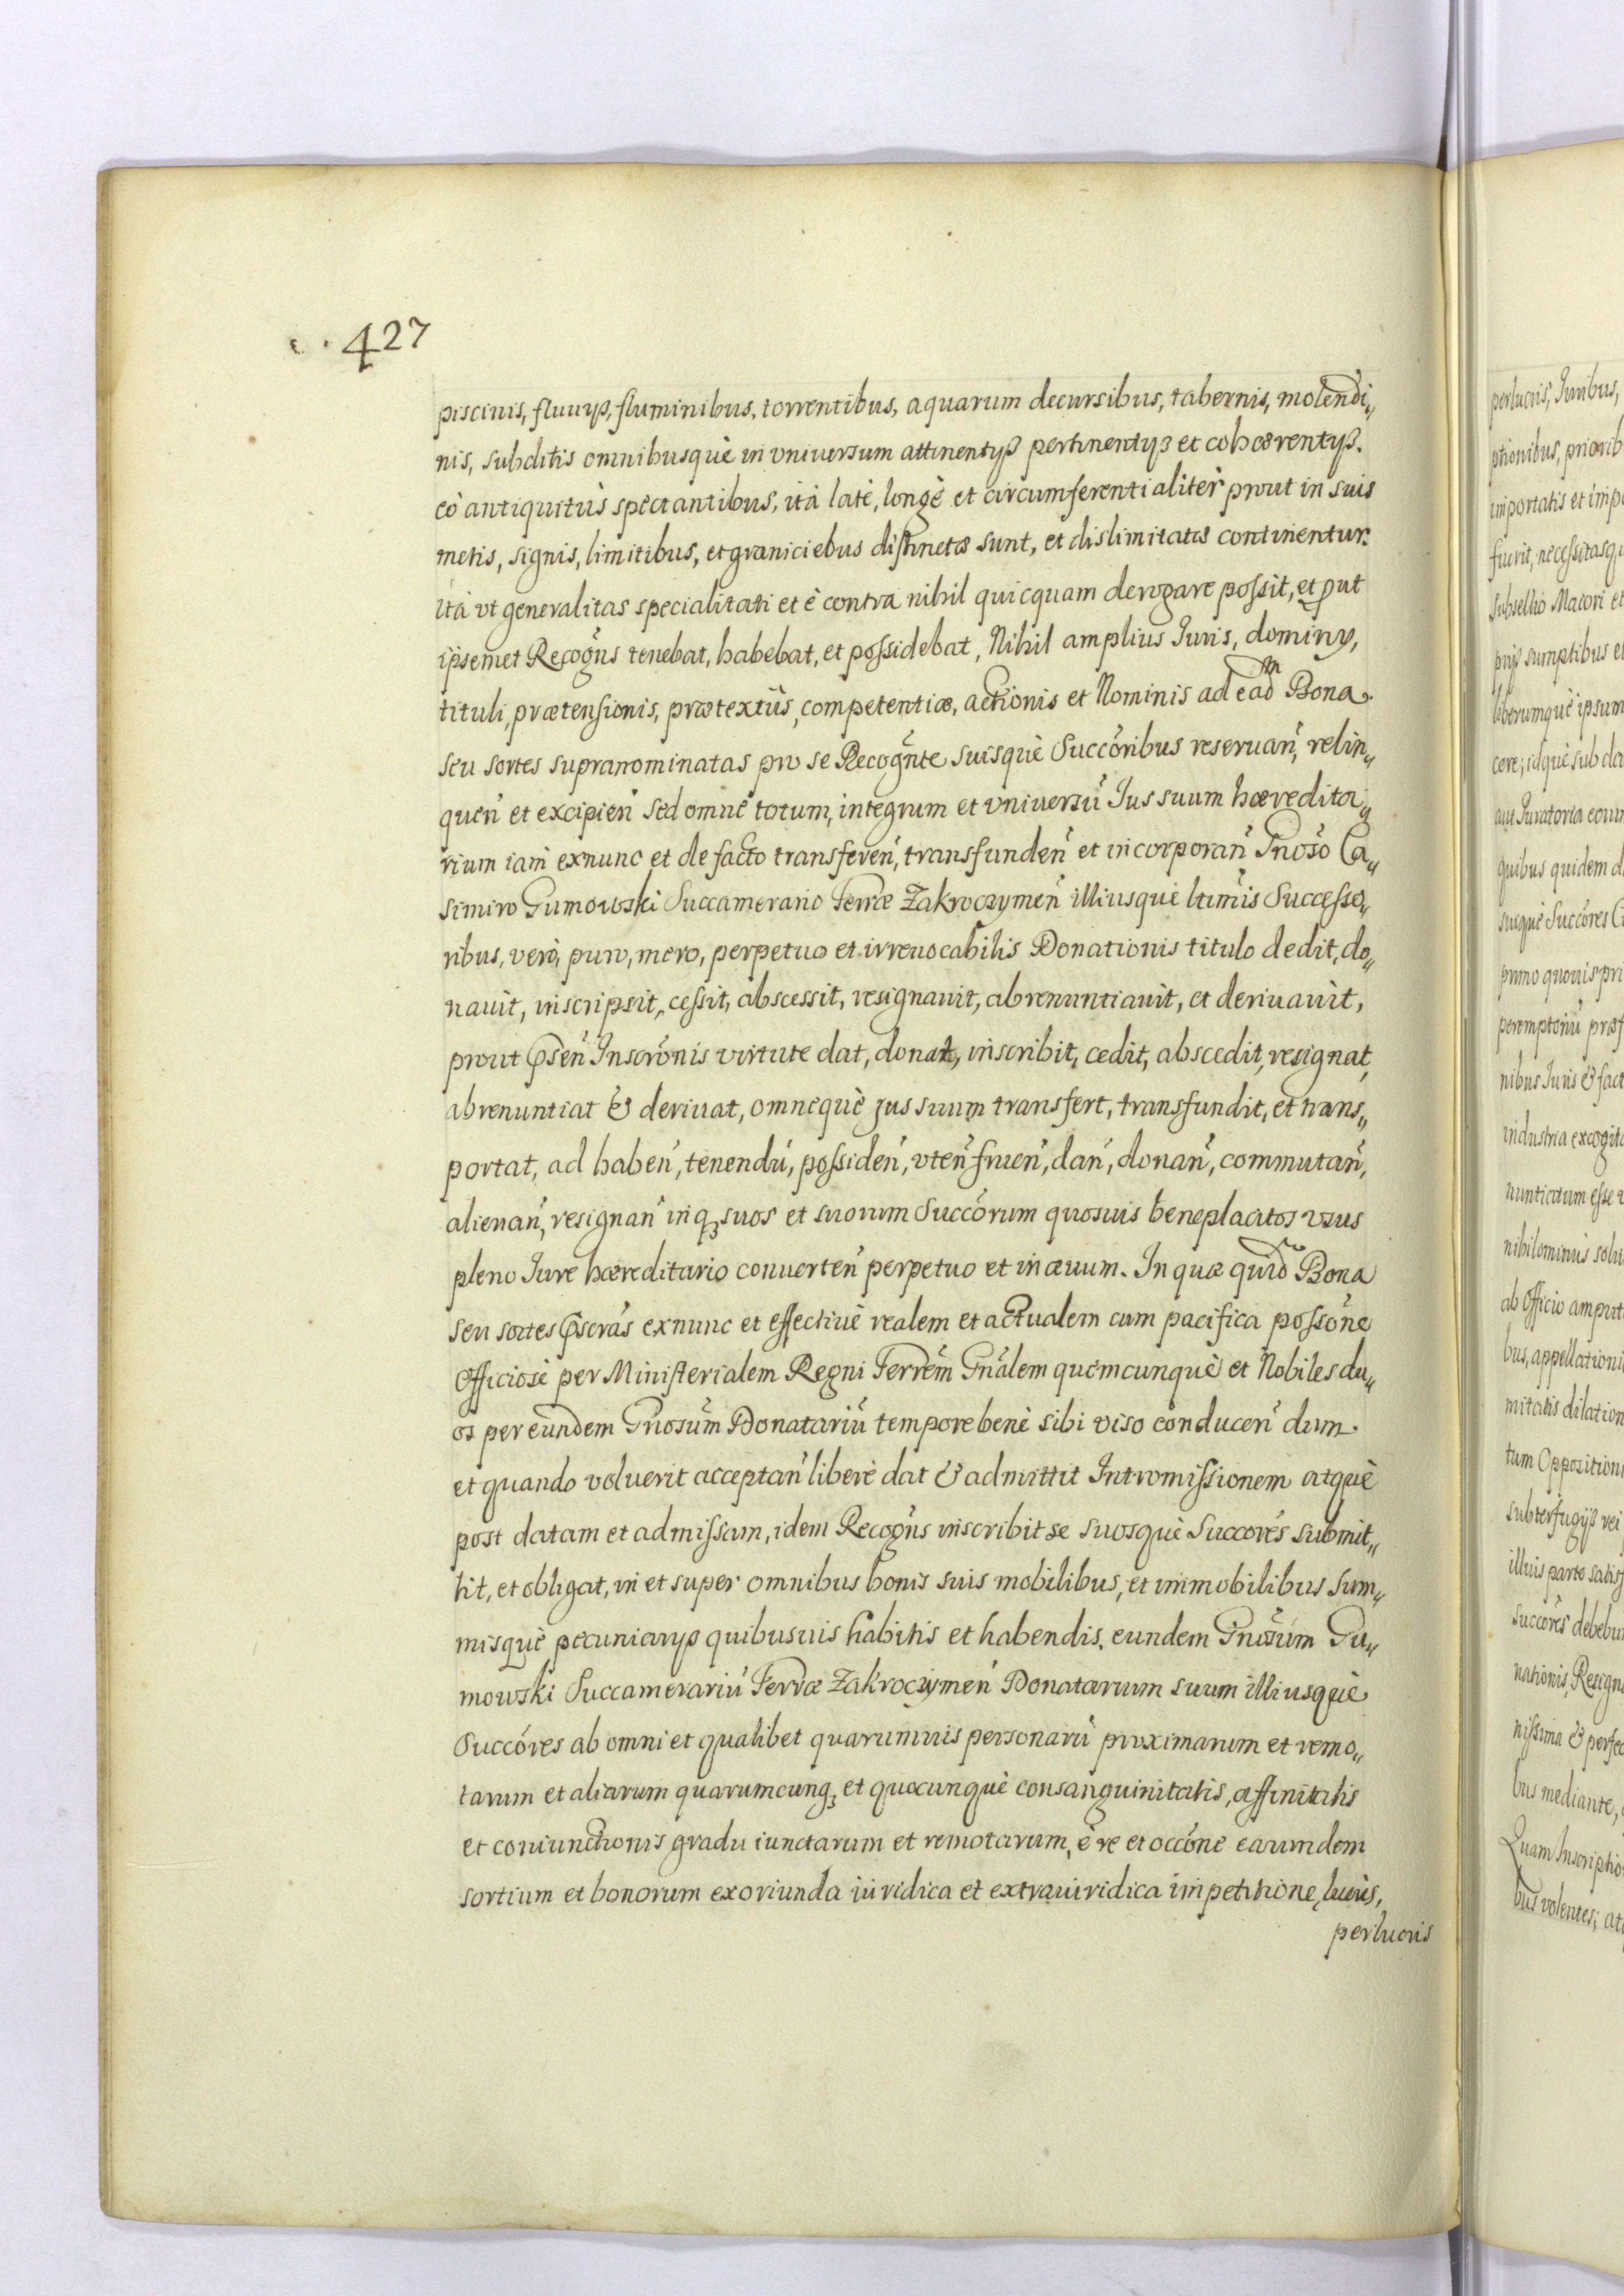 427
piscinis, fluuijs, fluminibus, torrentibus, aquarum decursibus, tabernis, molendi„
nis, subditis omnibusquè in vniuersum attinentijs pertinentijs et cohærentijs.
eò antiquitùs spectantibus, ità latè, longè et circumferentialitèr prout in suis
metis, signis, limitibus, et graniciebus distinctæ sunt, et dislimitatæ continentur.
ità vt generalitas specialitati et è contra nihil quicquam derogare possit, et put
ipsemet Recogñs tenebat, habebat, et possidebat, Nihil amplius Iuris, dominij,
tituli, prætensionis, prætextûs, competentiæ, actionis et Nominis ad eadm Bona
seu sortes supranominatas pro se Recogñte suisquè Succõribus reseruañ, relin„
queñ et excipieñ sed omne totum, integrum et vniuersũ Jus suum hæredita„
rium iam exnunc et de facto transfereñ, transfundeñ et incorporañ Gnõso Ca„
simiro Gumowski Succamerario Terræ Zakroczymeñ illiusquè ltimis Successo„
ribus, verò, puro, mero, perpetuo et irreuocabilis Donationis titulo dedit, do„
nauit, inscripsit, cessit, abscessit, resignauit, abrenuntiauit, et deriuauit,
prout Pseñ Inscrõnis virtute dat, donat, inscribit, cedit, abscedit, resignat,
abrenuntiat & deriuat, omnequè jus suum transfert, transfundit, et trans„
portat, ad habeñ, tenendũ, possideñ, vteñ frueñ, dañ, donañ, commutañ,
alienañ, resignañ inq₃ suos et suorum Succõrum quosuis beneplacitos vsus
pleno Jure hæreditario conuerteñ perpetuo et in æuum. In quæ quid Bona
seu sortes Pscrãs exnunc et effectiuè realem et actualem cum pacifica possõne
Officiosè per Ministerialem Regni Terrẽm Gnãlem quemcunquè et Nobiles du„
os per eundem Gnosũm Donatariũ tempore benè sibi viso conduceñ dum
et quando voluerit acceptañ liberè dat & admittit Intromissionem atquè
post datam et admissam, idem Recogñs inscribit se suosquè Succorẽs submit„
tit, et obligat, in et super omnibus bonis suis mobilibus, et immobilibus Sum„
misquè pecuniarijs quibusuis habitis et habendis, eundem Gnosũm Gu„
mowski Succamerariũ Terræ Zakroczymeñ Donatarium suum illiusquè
Succõres ab omni et qualibet quarumuis personarũ proximarum et remo„
tarum et aliarum quarumcunq₃ et quocunquè consanguinitatis, affinitatis
et coniunctionis gradu iunctarum et remotarum, è re et occõne earumdem
sortium et bonorum exoriunda iuridica et extrauiridica impetitione, lucris,
perlucris
perlucris, Iuribus,
ptionibus, priorib
importatis et imp
fuerit, necessitasq
Subsellio Maiori et
pijs sumptibus et
liberumquè ipsum
cere; idquè sub da
aut Iuratoria eoru
quibus quidem d
suisquè Succõres C
primo quouis pri
peremptoriũ præf
nibus Iuris & fact
industria excogita
nunticatum esse
nihilominùs solu
ab Officio amput
bus, appellationi
mitatis dilation
tum Oppositioni
subterfugijs rei
illius parte satisf
Succõres debebu
nationis, Resigna
nissima & perfec
bus mediante,
Quam Inscriptio
bus volentes; at